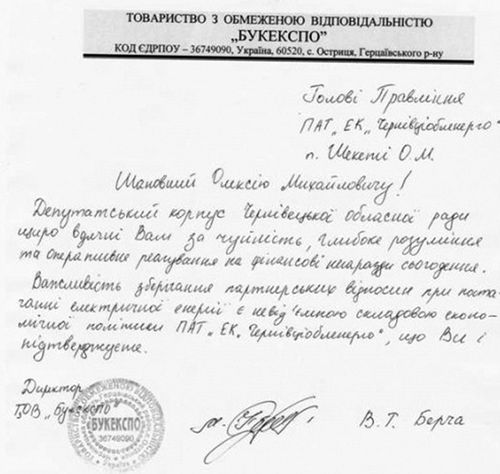 ТОВАРИСТВО З ОБМЕЖЕНОЮ ВІДПОВІДАЛЬНІСТЮ
„БУКЕКСПО”
КОД ЄДРПОУ – 36749090, Україна, 60520, с. Остриця, Герцаївського р-ну
Голові Правління
ПАТ „ЕК „Чернівціобленерго”
п. Шекеті О.М.
Шановний Олексію Михайловичу!
Депутатський корпус Чернівецької Обласної ради
щиро вдячні Вам за чуйність, глибоке розуміння
та оперативне реагування на фінансові негаразди сьогодення.
Важливість зберігання партнерських відносин при поста-
ганні електричної енергії є невід'ємною складовою еконо-
мічної політики ПАТ „ЕК „Чернівціобленерго”, що Ви і
підтверджуєте.
Директор
ТОВ „Букекспо”
БУКЕКСПО
36749090
В.Т. Берча